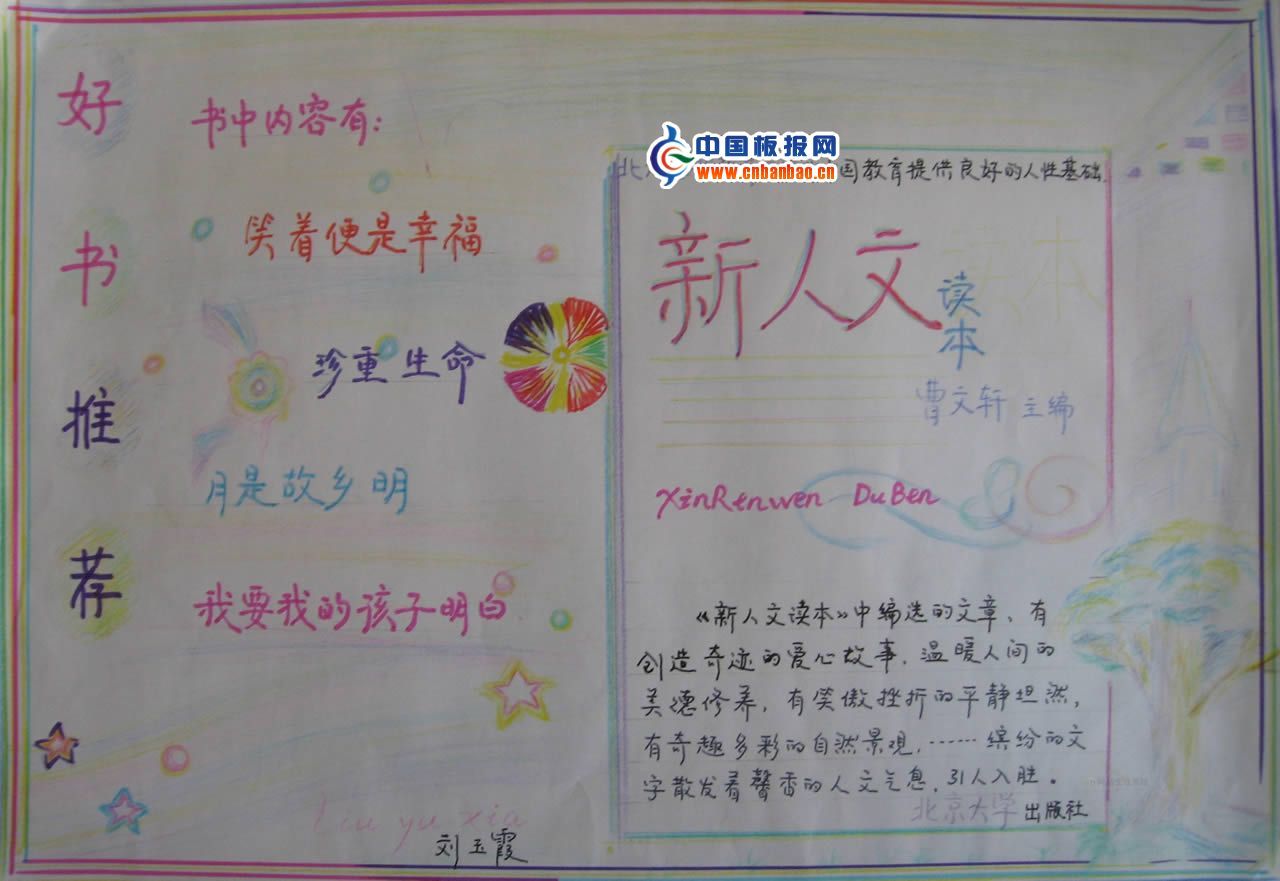 好书推荐
书中内容有:
笑着便是幸福
珍重生命
月是故乡明
我要我的孩子明白
Liu yu xia
刘玉霞
中国板报网
www.cnbanbao.cn
国教育提供良好的人性基础.
新人文
读本
曹文轩 主编
XinRenwen DuBen
《新人文读本》中编选的文章,有
创造奇迹的爱心故事,温暖人间的
美德修养,有笑傲挫折的平静坦然,
有奇趣多彩的自然景观,……缤纷的文
字散发着馨香的人文气息,引人入胜。
北京大学出版社